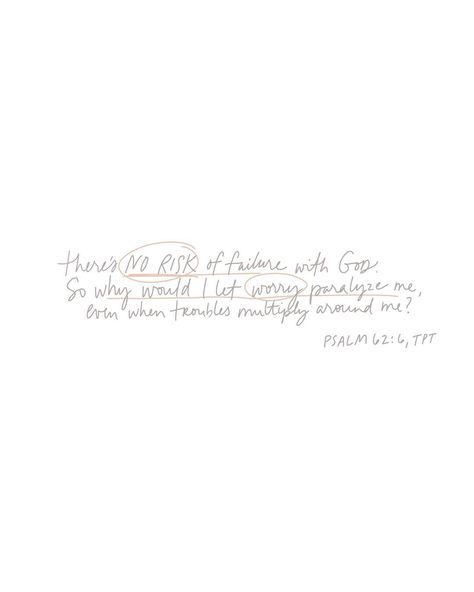 there's NO RISK of failure with GOD.
So why would I let worry paralyze me,
even when troubles multiply around me?
PSALM 62:6, TPT